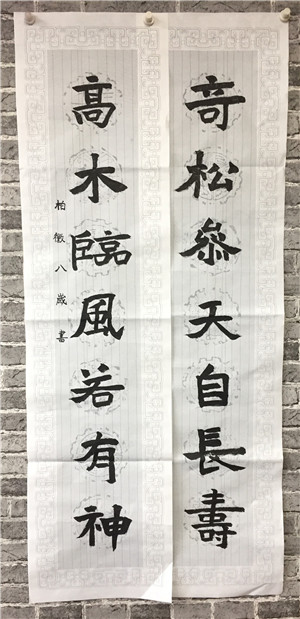 奇松叅天自長壽
高木臨風若有神
柏徵八歲書